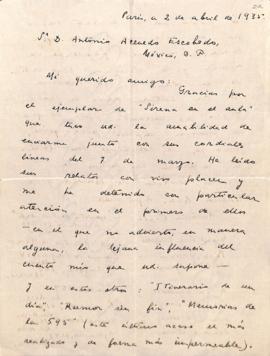 París, a 2 de abril de 1935
Sr. D. Antonio Acevedo Escobedo,
México, D. F.
Mi querido amigo:
Gracias por
el ejemplar de "Sirena en el aula"
que tuvo ud. la amabilidad de
enviarme junto con sus cordiales
líneas del 7 de marzo. He leído
sus relatos con vivo placer y
me he detenido con particular
atención en el primero de ellos
—en el que no advierto, en manera
alguna, la lejana influencia del
cuento mío que ud. supone—
y en estos otros: "Itinerario de un
día", "Rumor sin fin", "Memorias de
la 595" (este último acaso el más
realizado y de forma más impermeable).